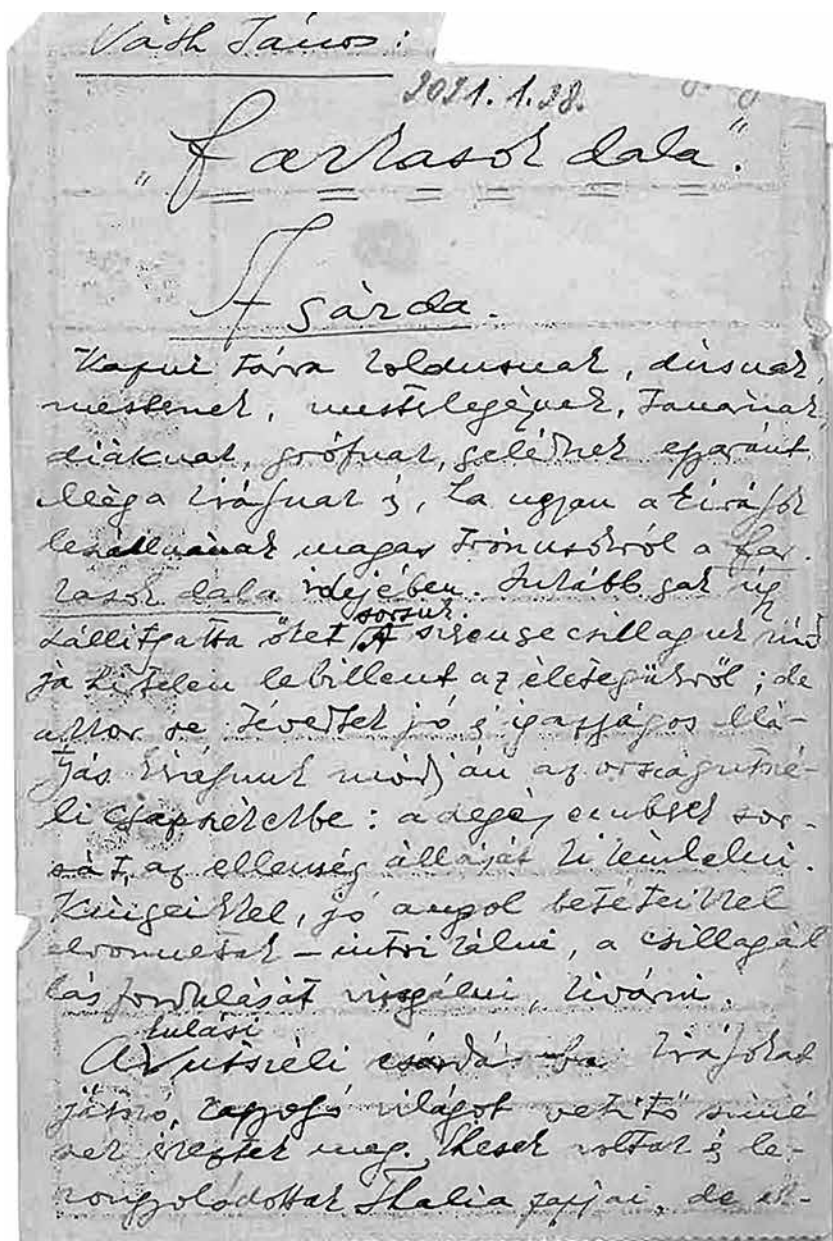 Váth János:
2021.1.28.
„Farkasok dala”.
A csárda.
Kapuk tárva koldusnak, dúsnak,
mesternek, mesterlegénynek, tanárnak,
diáknak, grófnak, cselédnek egyaránt.
Még a királynak is, ha ugyan a királyok
leszállnának magas trónusokról a far-
kasok dala idejében. Inkább csak úgy
szállítgatta őket sorsuk. A szerencsecsillaguk
ja hirtelen lebillent az élet égükről; de
akkor se tévedtek jó és igazságos Má-
tyás királyunk módján az országútmé-
li csapszékekbe: a degéj emberek sor-
sát, az ellenség állását kikémlelni.
Kincseikkel, jó angol betéteikkel
elvonultak – intrikálni, a csillagál-
lás fordulását vizsgálni, kivárni.
A tulási útszéli csárdába királyokat
játszó, ragyogó világot vetítő színé-
szek éreztek meg. Éhesek voltak és le-
rongyolódottak Thalia papjai, de